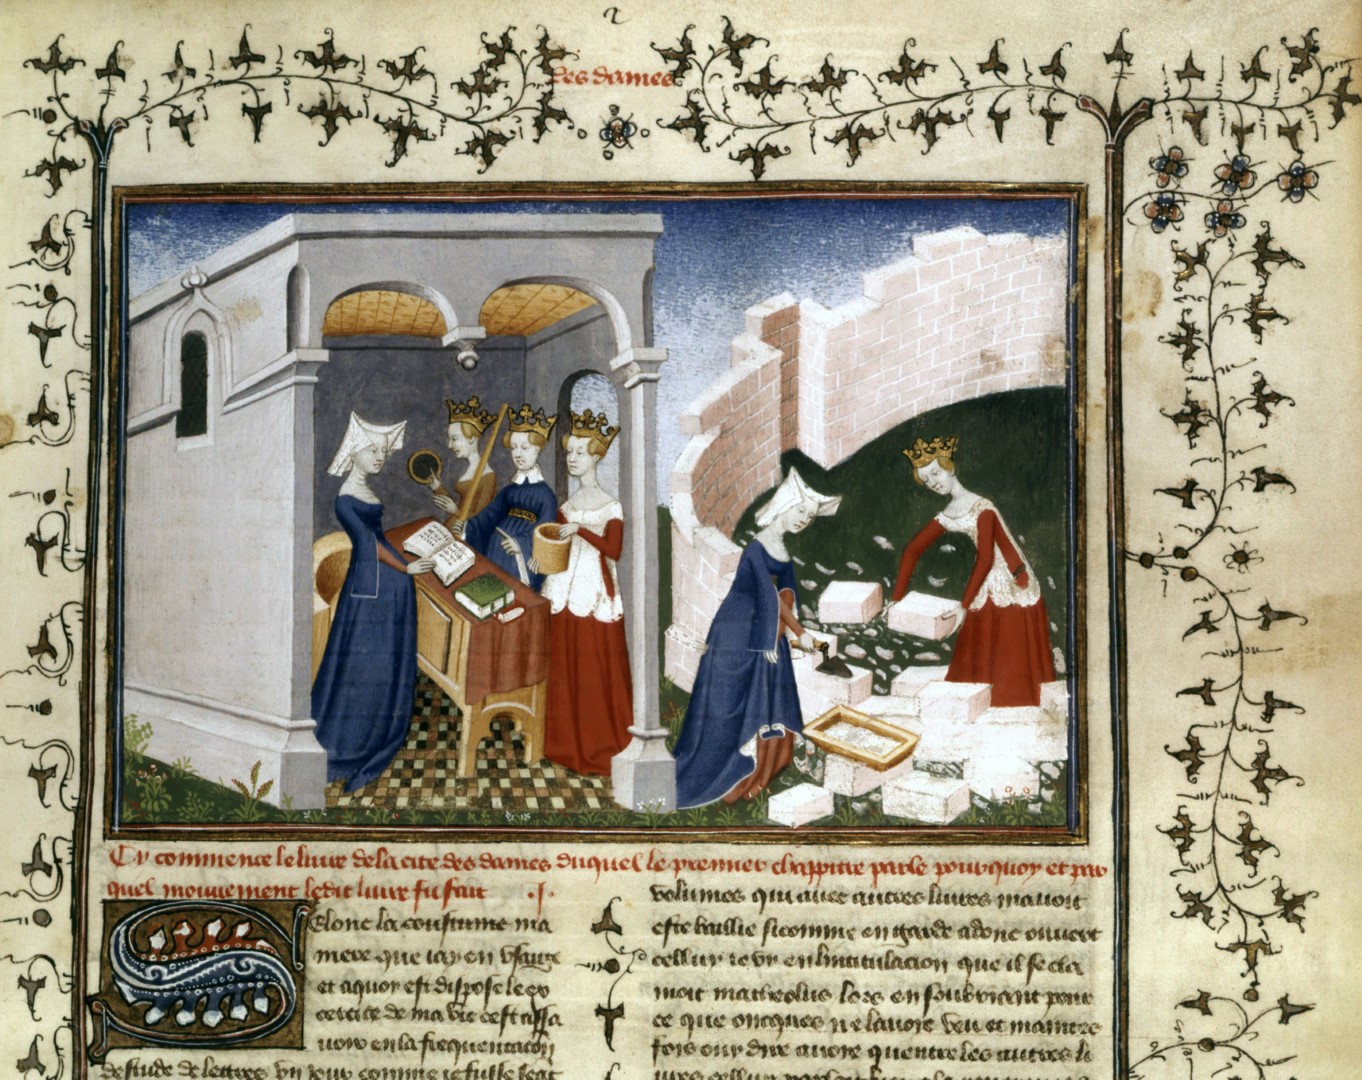 2
Des dames
Cy commence le livre de la cite des dames duquel le premier chappitre parle pourquoy et par
quel mouvement le dit livre fu fait .I.
Selonc la coustume ma
niere que iay en usaige
et a quoy est dispose le ex
cercice de ma vie cest assa
voir en la frequentacion
destude de lettres un jour comme ie fusse seat
volumes qui avec autres livres mavoit
este baillie si comme en garde adonc ouvert
cellui ie vy en lintitulacion que il se cla
moit matheolus lors en soubriant pour
ce que oncques ne lavoie veu et maintes
fois ouy dire avoie quentre les autres li